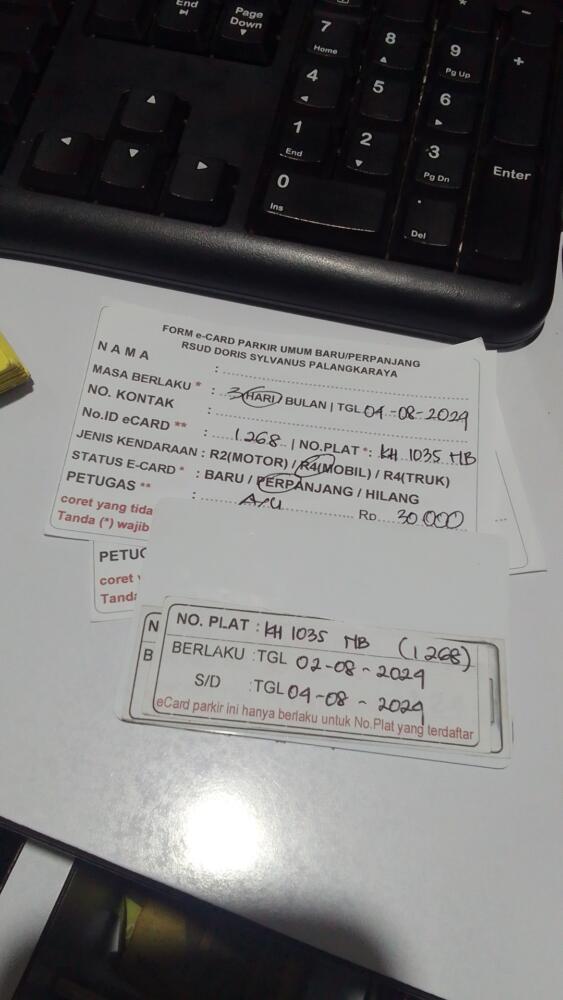 End
Page
Down
7
Home
8
9
Pg Up
+
4
5
6
1
End
2
3
Pg Dn
Enter
0
Ins
.
Del
FORM e-CARD PARKIR UMUM BARU/PERPANJANG
RSUD DORIS SYLVANUS PALANGKARAYA
N A M A :
MASA BERLAKU * : 3 HARI / BULAN | TGL 04-08-2024
NO. KONTAK :
No.ID eCARD ** : 1268 | NO.PLAT *: KH 1035 MB
JENIS KENDARAAN : R2(MOTOR) / R4(MOBIL) / R4(TRUK)
STATUS E-CARD * : BARU / PERPANJANG / HILANG
PETUGAS ** : Rp 30.000
coret yang tida
Tanda (*) wajib
PETUG
coret
Tanda
N
B
NO. PLAT : KH 1035 MB (1268)
BERLAKU :TGL 02-08-2024
S/D :TGL 04-08-2024
eCard parkir ini hanya berlaku untuk No.Plat yang terdaftar